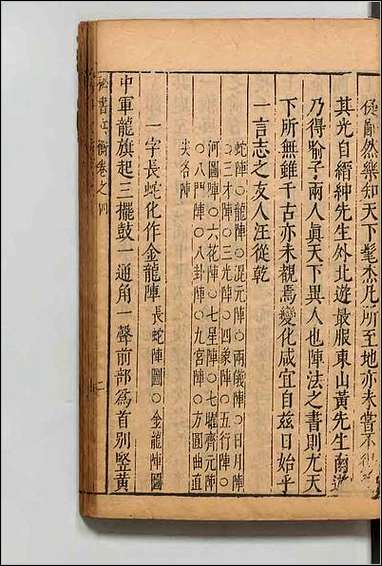 僿鄙然樂知天下髦杰凡所至地亦未嘗不得
其光自縉紳先生外北遊最服東山黃先生南遊
乃得喻子兩人真天下異人也陣法之書則尤天
下所無雖千古亦未覩焉變化咸宜自茲日始乎
一言志之友人汪從乾
蛇陣○龍陣○混元陣○兩儀陣○日月陣
○三才陣○三光陣○四象陣○五行陣○
河圖陣○六花陣○七星陣○七曜齊元陣
○八門陣○八卦陣○九宮陣○方圓曲直
尖洛陣
一字長蛇化作金龍陣 長蛇陣圖○金龍陣圖
中軍龍旗起三擺鼓一通角一聲前部為首別竪黃
卷之四
二